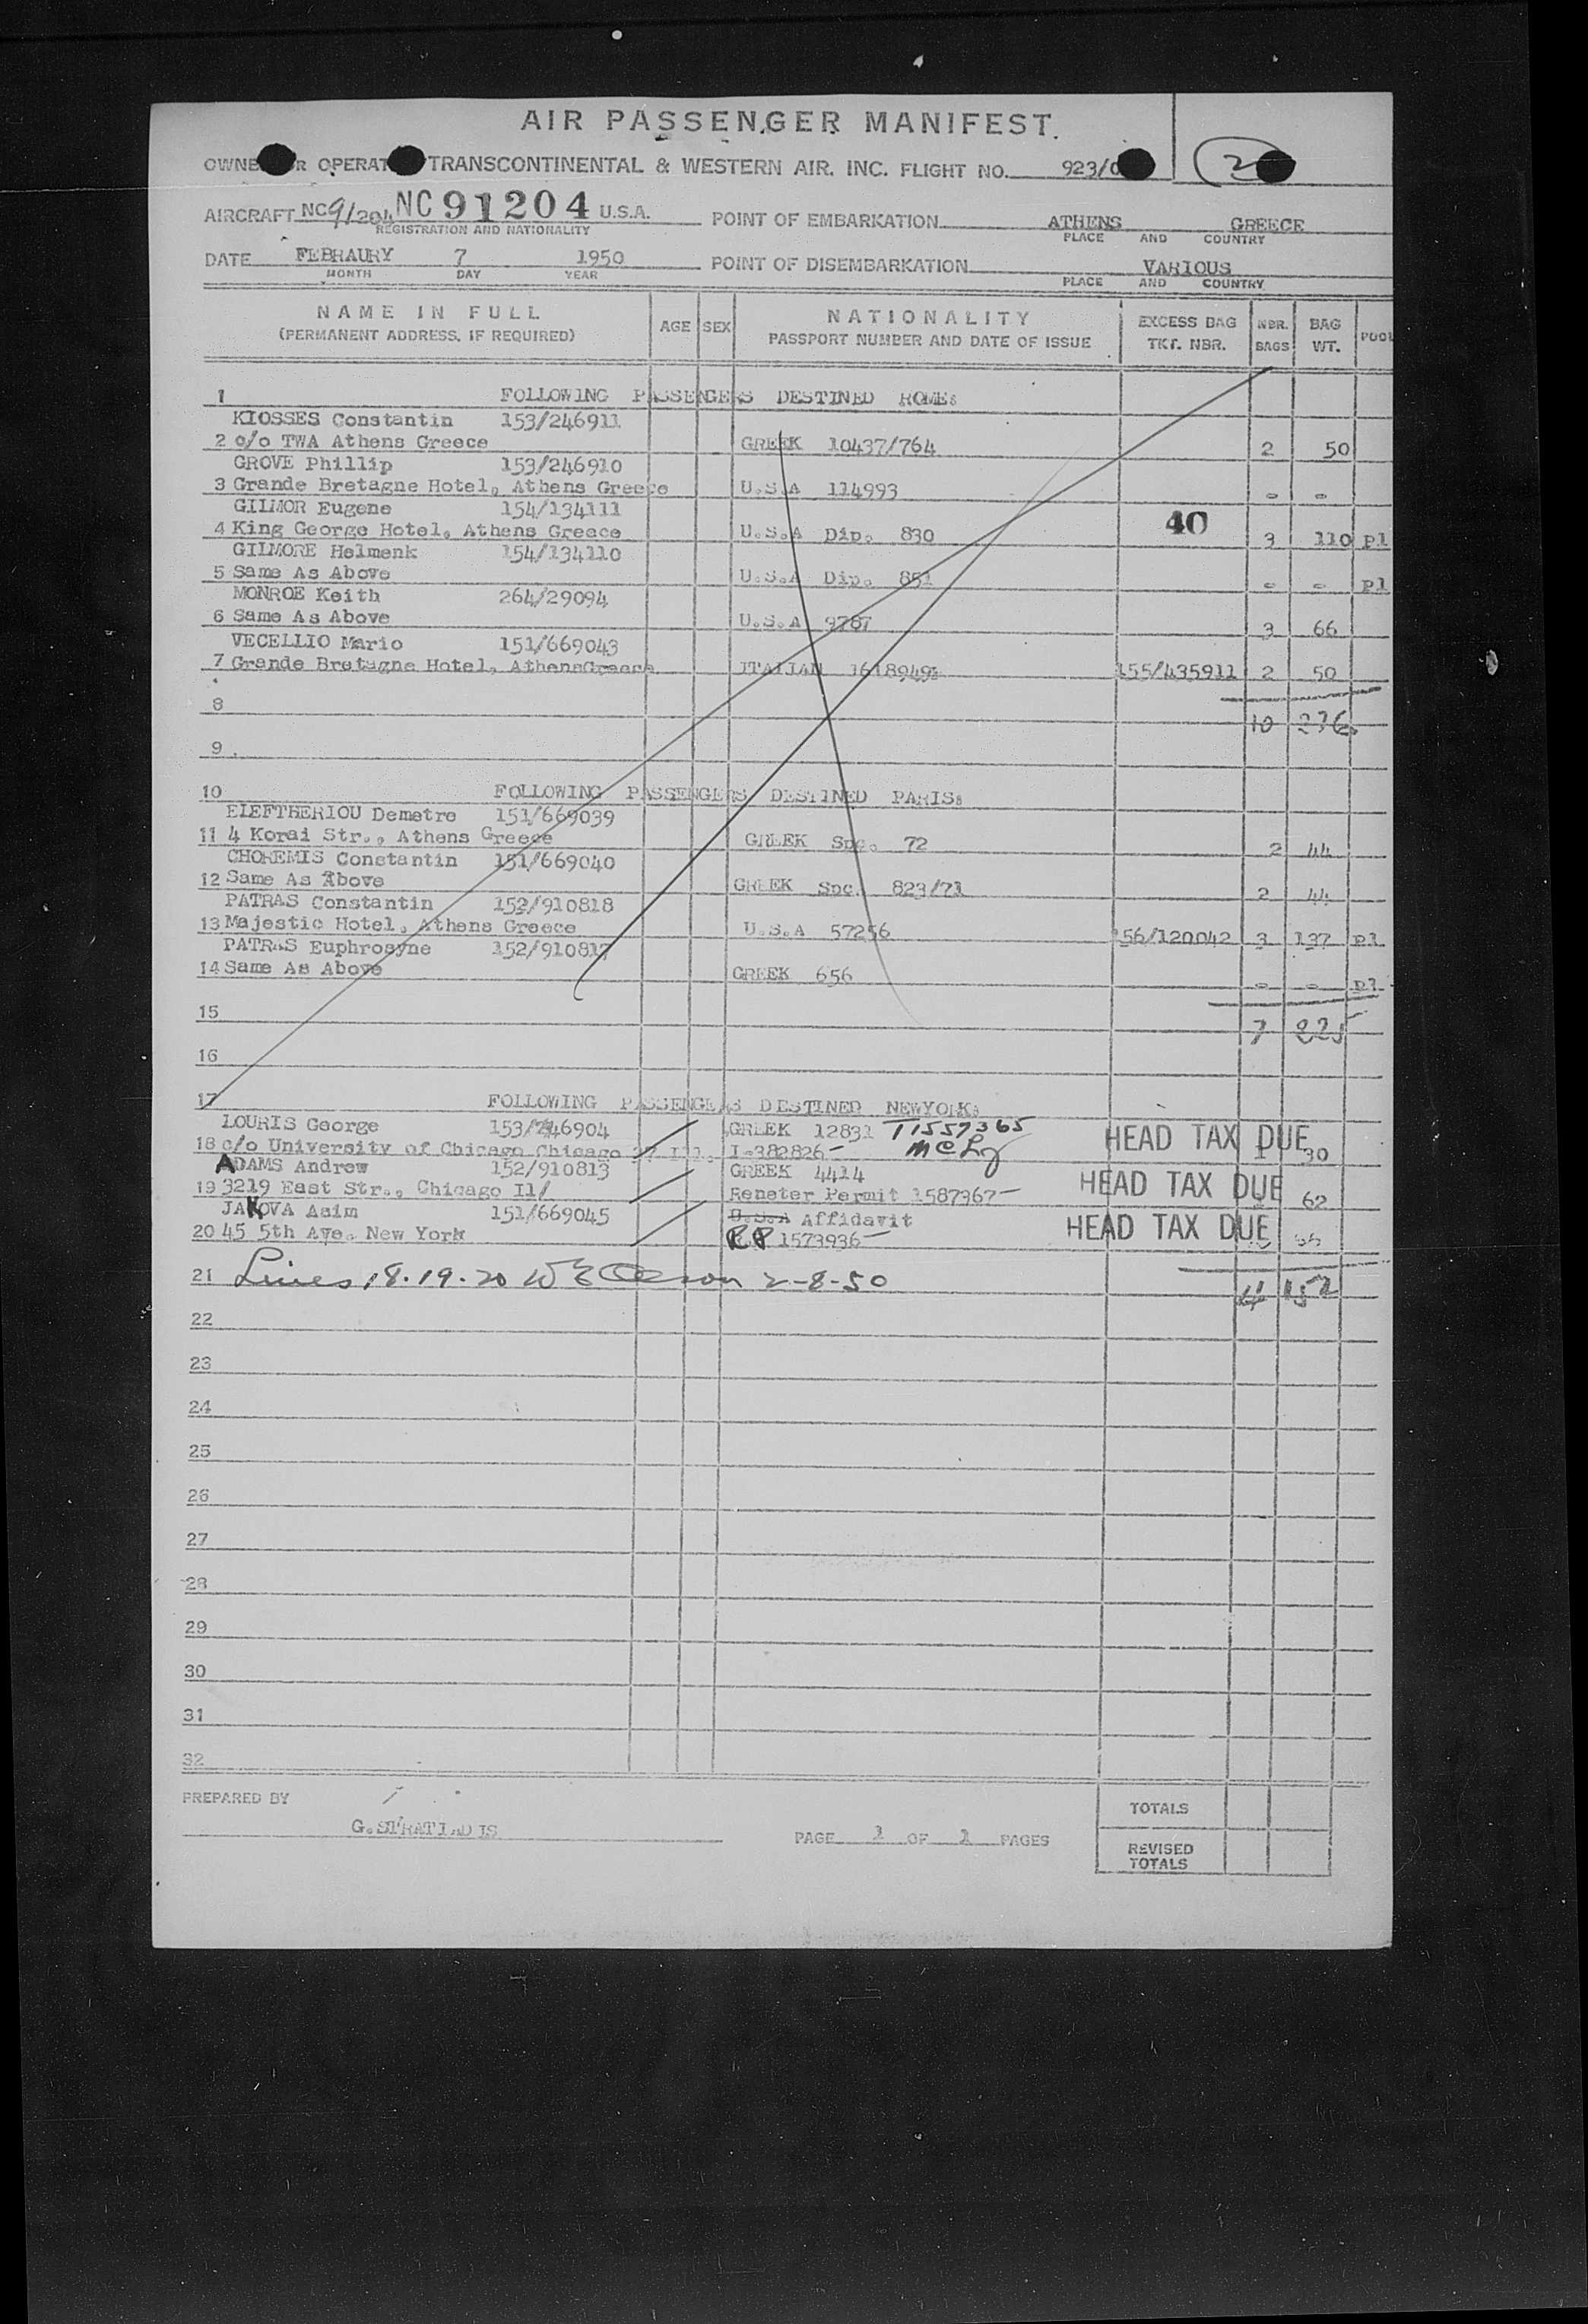 AIR PASSENGER MANIFEST.
OWNE R OPERAT TRANSCONTINENTAL & WESTERN AIR. INC. FLIGHT NO. 923/0 2
AIRCRAFT NC91204 NC 91204 U.S.A. POINT OF EMBARKATION ATHENS GREECE
REGISTRATION AND NATIONALITY PLACE AND COUNTRY
DATE FEBRAURY 7 1950 POINT OF DISEMBARKATION VARIOUS
MONTH DAY YEAR PLACE AND COUNTRY
NAME IN FULL AGE SEX NATIONALITY EXCESS BAG NBR. BAG POOL
(PERMANENT ADDRESS, IF REQUIRED) PASSPORT NUMBER AND DATE OF ISSUE TKT. NBR. BAGS WT.
1 FOLLOWING PASSENGERS DESTINED ROME:
KIOSSES Constantin 153/246911
2 c/o TWA Athens Greece GREEK 10437/764 2 50
GROVE Phillip 153/246910
3 Grande Bretagne Hotel, Athens Greece U.S.A 114993 - -
GILMOR Eugene 154/134111
4 King George Hotel, Athens Greece U.S.A Dip. 830 40 3 110 pl
GILMORE Helmenk 154/134110
5 Same As Above U.S.A Dip. 851 - - pl
MONROE Keith 264/29094
6 Same As Above U.S.A 9787 3 66
VECELLIO Mario 151/669043
7 Grande Bretagne Hotel, AthensGreece ITALIAN 155/435911 2 50
8 10 276
9
10 FOLLOWING PASSENGERS DESTINED PARIS:
ELEFTHERIOU Demetre 151/669039
11 4 Korai Str., Athens Greece GREEK Spc. 72 2 44
CHOREMIS Constantin 151/669040
12 Same As Above GREEK Spc. 823/71 2 44
PATRAS Constantin 152/910818
13 Majestic Hotel, Athens Greece U.S.A 57256 156/120042 3 137 pl
PATRAS Euphrosyne 152/910817
14 Same As Above GREEK 656 - - pl
15 7 225
16
17 FOLLOWING PASSENGERS DESTINED NEWYORK:
LOURIS George 153/246904 GREEK 12831 T1557365
18 c/o University of Chicago Chicago Ill. I-382826 HEAD TAX DUE 30
ADAMS Andrew 152/910813 GREEK 4414
19 3219 East Str., Chicago Ill Reneter Permit 1587967 HEAD TAX DUE 62
JAKOVA Asim 151/669045 U.S.A Affidavit
20 45 5th Ave. New York RP 1573936 HEAD TAX DUE
21 Lines 18.19.20 2-8-50 4 152
22
23
24
25
26
27
28
29
30
31
32
PREPARED BY TOTALS
G.STRATIADIS PAGE 1 OF 1 PAGES
REVISED
TOTALS